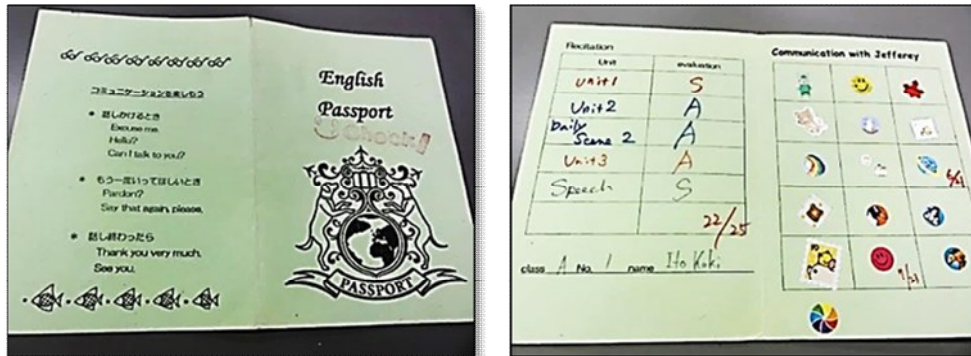 コミュニケーションを楽しもう
* 話しかけるとき
Excuse me.
Hello?
Can I talk to you?
* もう一度いってほしいとき
Pardon?
Say that again, please.
* 話し終わったら
Thank you very much.
See you.
English
Passport
Check!
PASSPORT
Recitation
Unit evaluation
Unit1 S
Unit2 A
Daily Scene 2 A
Unit3 A
Speech S
22/25
class A No. 1 name Ito Koki
Communication with Jefferey
9/21